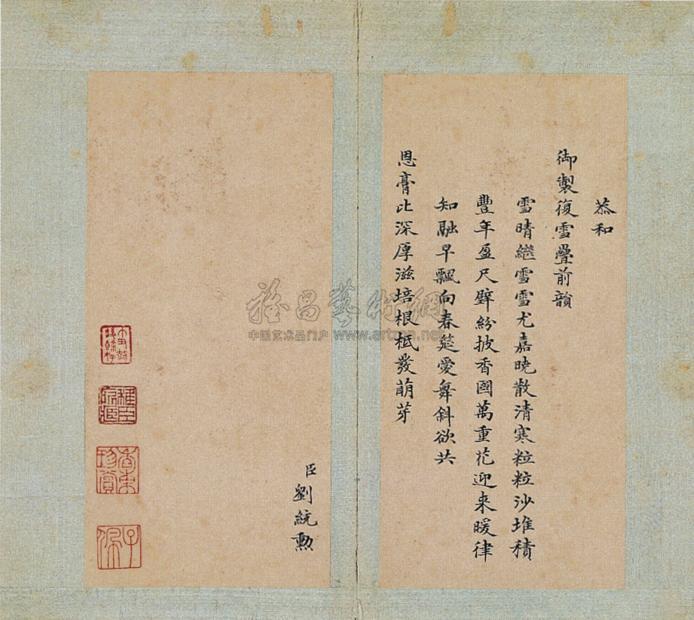 恭和
御製復雪疊前韻
雪晴繼雪雪尤嘉曉散清寒粒粒沙堆積
豐年盈尺壁紛披香國萬重花迎來暖律
知融早飄向春筵愛舞斜欲共
恩膏比深厚滋培根柢發萌芽
臣劉統勲
雅昌藝術網
中国艺术品门户 www.artron.net